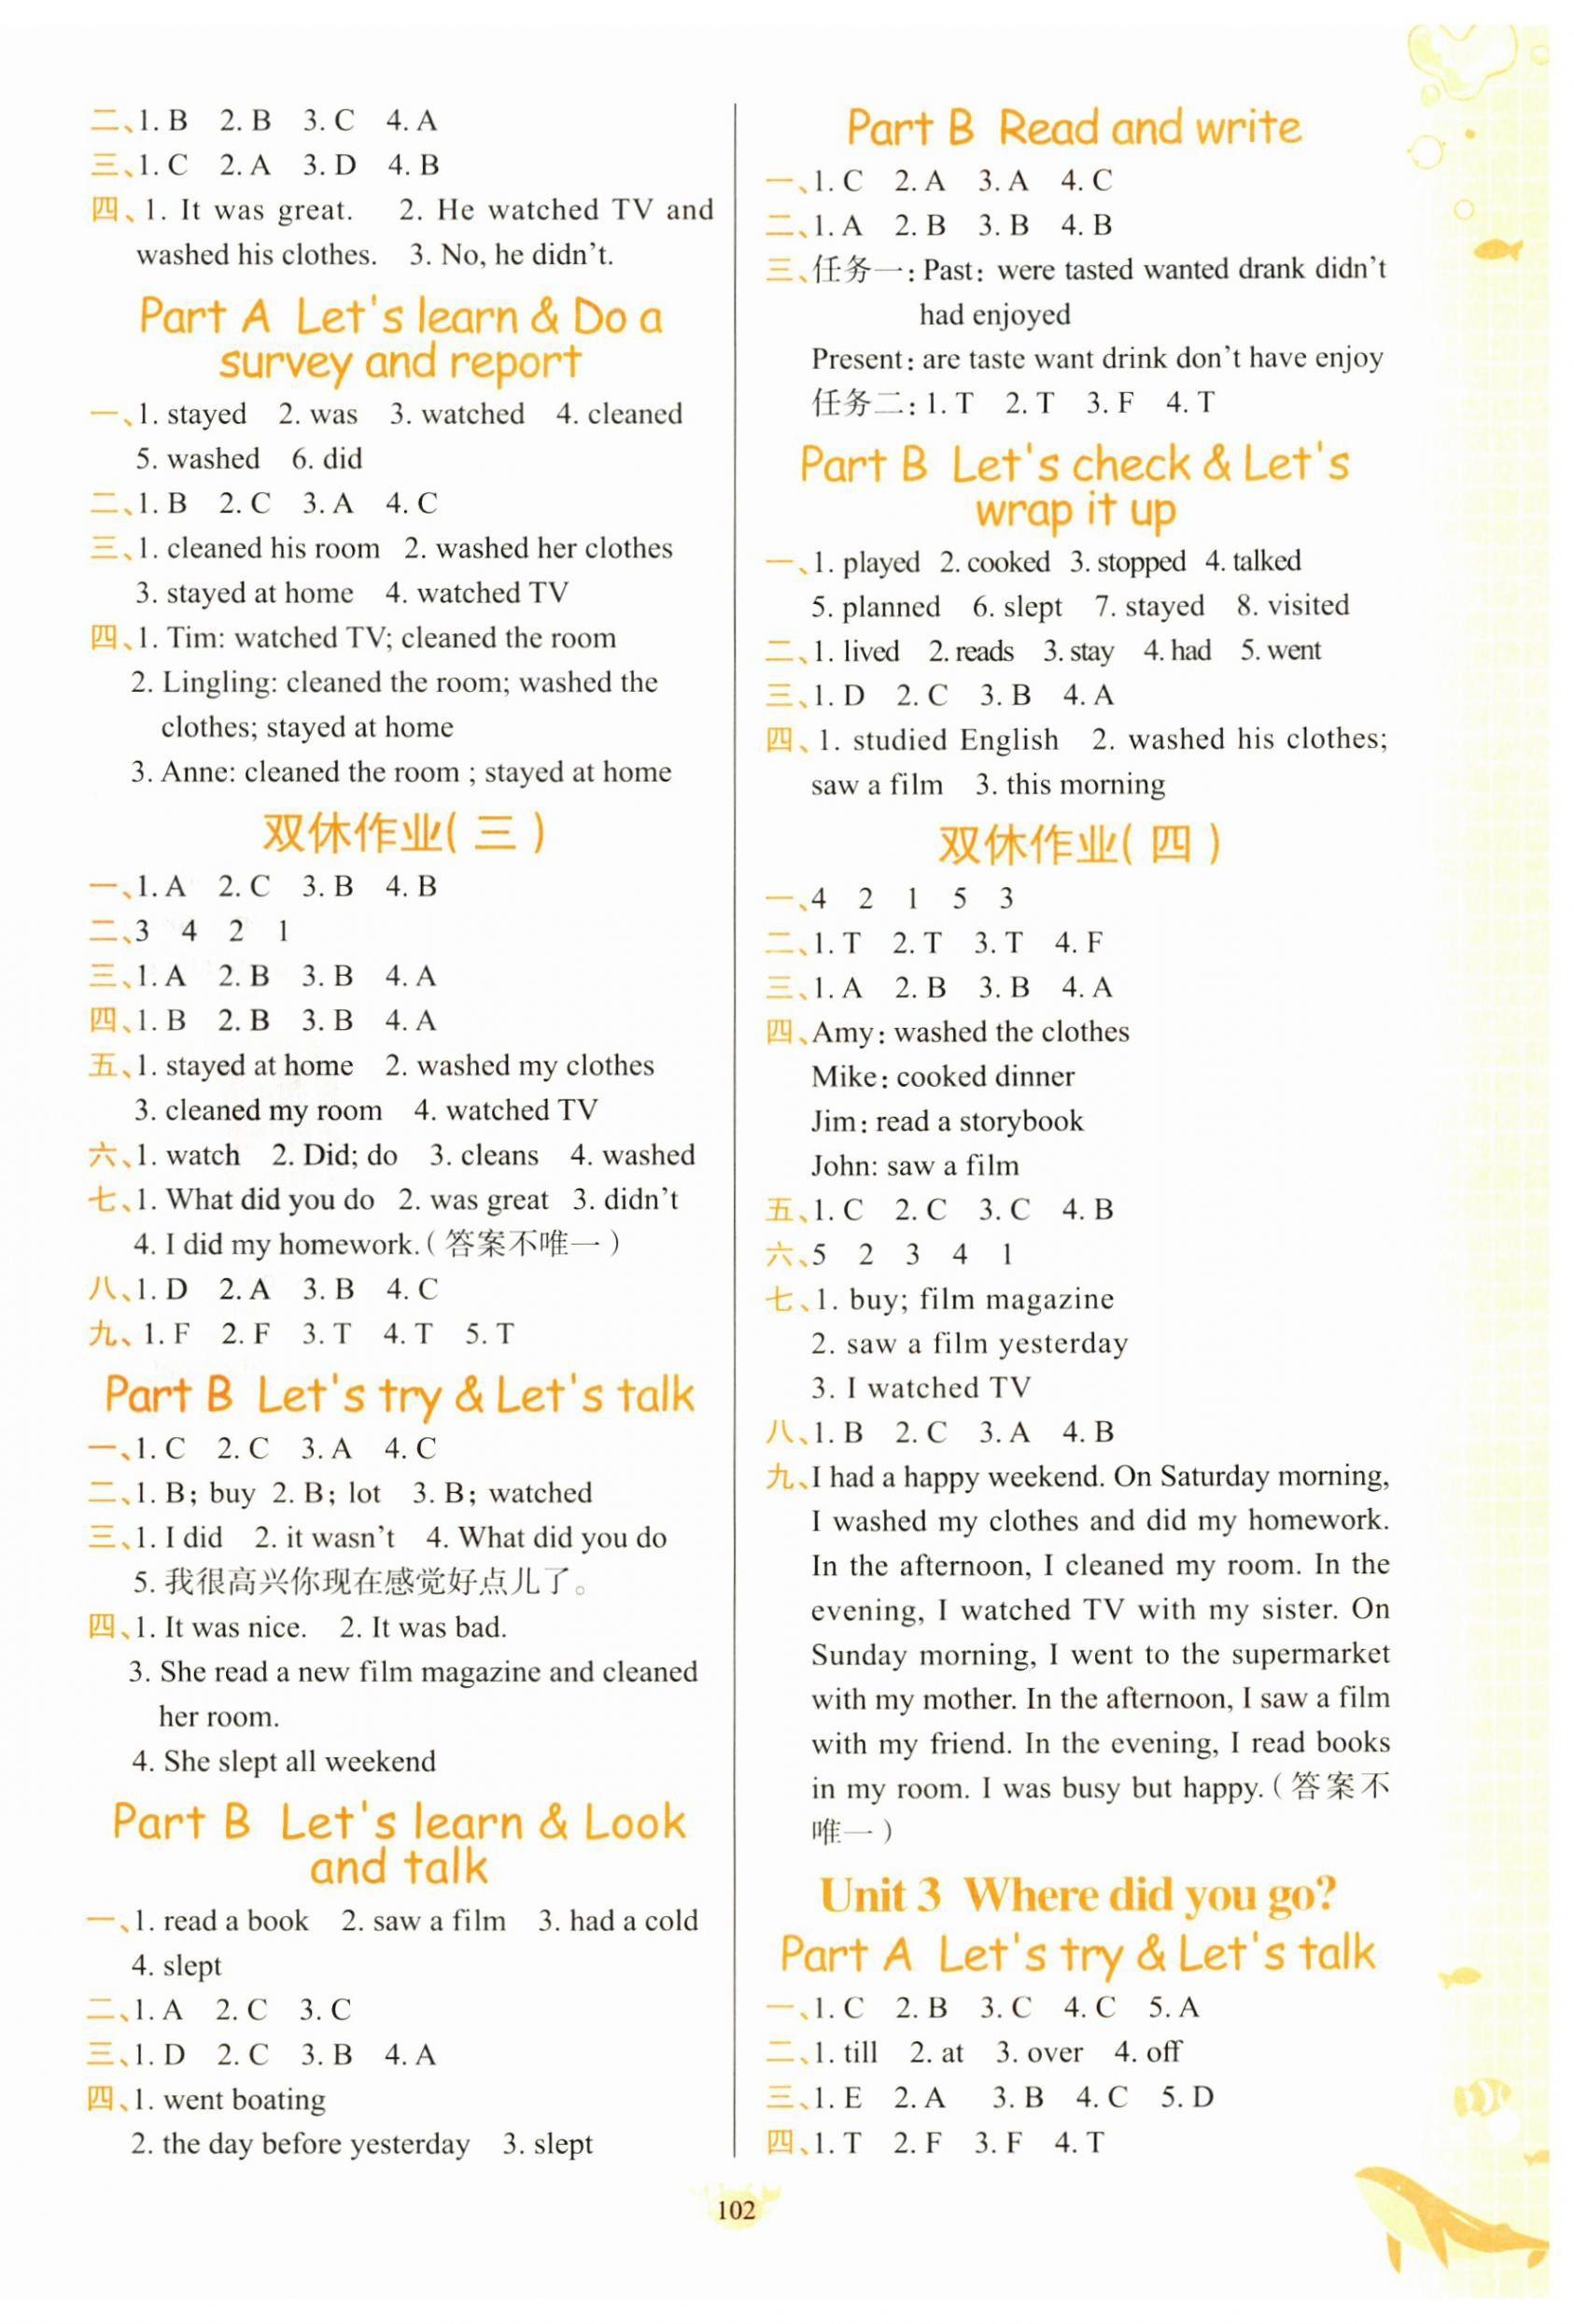 二、1. B 2. B 3. C 4. A
三、1. C 2. A 3. D 4. B
四、1. It was great. 2. He watched TV and
washed his clothes. 3. No, he didn't.
Part A Let's learn & Do a
survey and report
一、1. stayed 2. was 3. watched 4. cleaned
5. washed 6. did
二、1. B 2. C 3. A 4. C
三、1. cleaned his room 2. washed her clothes
3. stayed at home 4. watched TV
四、1. Tim: watched TV; cleaned the room
2. Lingling: cleaned the room; washed the
clothes; stayed at home
3. Anne: cleaned the room ; stayed at home
双休作业(三)
一、1. A 2. C 3. B 4. B
二、3 4 2 1
三、1. A 2. B 3. B 4. A
四、1. B 2. B 3. B 4. A
五、1. stayed at home 2. washed my clothes
3. cleaned my room 4. watched TV
六、1. watch 2. Did; do 3. cleans 4. washed
七、1. What did you do 2. was great 3. didn't
4. I did my homework.(答案不唯一)
八、1. D 2. A 3. B 4. C
九、1. F 2. F 3. T 4. T 5. T
Part B Let's try & Let's talk
一、1. C 2. C 3. A 4. C
二、1. B; buy 2. B; lot 3. B; watched
三、1. I did 2. it wasn't 4. What did you do
5. 我很高兴你现在感觉好点儿了。
四、1. It was nice. 2. It was bad.
3. She read a new film magazine and cleaned
her room.
4. She slept all weekend
Part B Let's learn & Look
and talk
一、1. read a book 2. saw a film 3. had a cold
4. slept
二、1. A 2. C 3. C
三、1. D 2. C 3. B 4. A
四、1. went boating
2. the day before yesterday 3. slept
Part B Read and write
一、1. C 2. A 3. A 4. C
二、1. A 2. B 3. B 4. B
三、任务一: Past: were tasted wanted drank didn't
had enjoyed
Present: are taste want drink don't have enjoy
任务二: 1. T 2. T 3. F 4. T
Part B Let's check & Let's
wrap it up
一、1. played 2. cooked 3. stopped 4. talked
5. planned 6. slept 7. stayed 8. visited
二、1. lived 2. reads 3. stay 4. had 5. went
三、1. D 2. C 3. B 4. A
四、1. studied English 2. washed his clothes;
saw a film 3. this morning
双休作业(四)
一、4 2 1 5 3
二、1. T 2. T 3. T 4. F
三、1. A 2. B 3. B 4. A
四、Amy: washed the clothes
Mike: cooked dinner
Jim: read a storybook
John: saw a film
五、1. C 2. C 3. C 4. B
六、5 2 3 4 1
七、1. buy; film magazine
2. saw a film yesterday
3. I watched TV
八、1. B 2. C 3. A 4. B
九、I had a happy weekend. On Saturday morning,
I washed my clothes and did my homework.
In the afternoon, I cleaned my room. In the
evening, I watched TV with my sister. On
Sunday morning, I went to the supermarket
with my mother. In the afternoon, I saw a film
with my friend. In the evening, I read books
in my room. I was busy but happy.(答案不
唯一)
Unit 3 Where did you go?
Part A Let's try & Let's talk
一、1. C 2. B 3. C 4. C 5. A
二、1. till 2. at 3. over 4. off
三、1. E 2. A 3. B 4. C 5. D
四、1. T 2. F 3. F 4. T
102